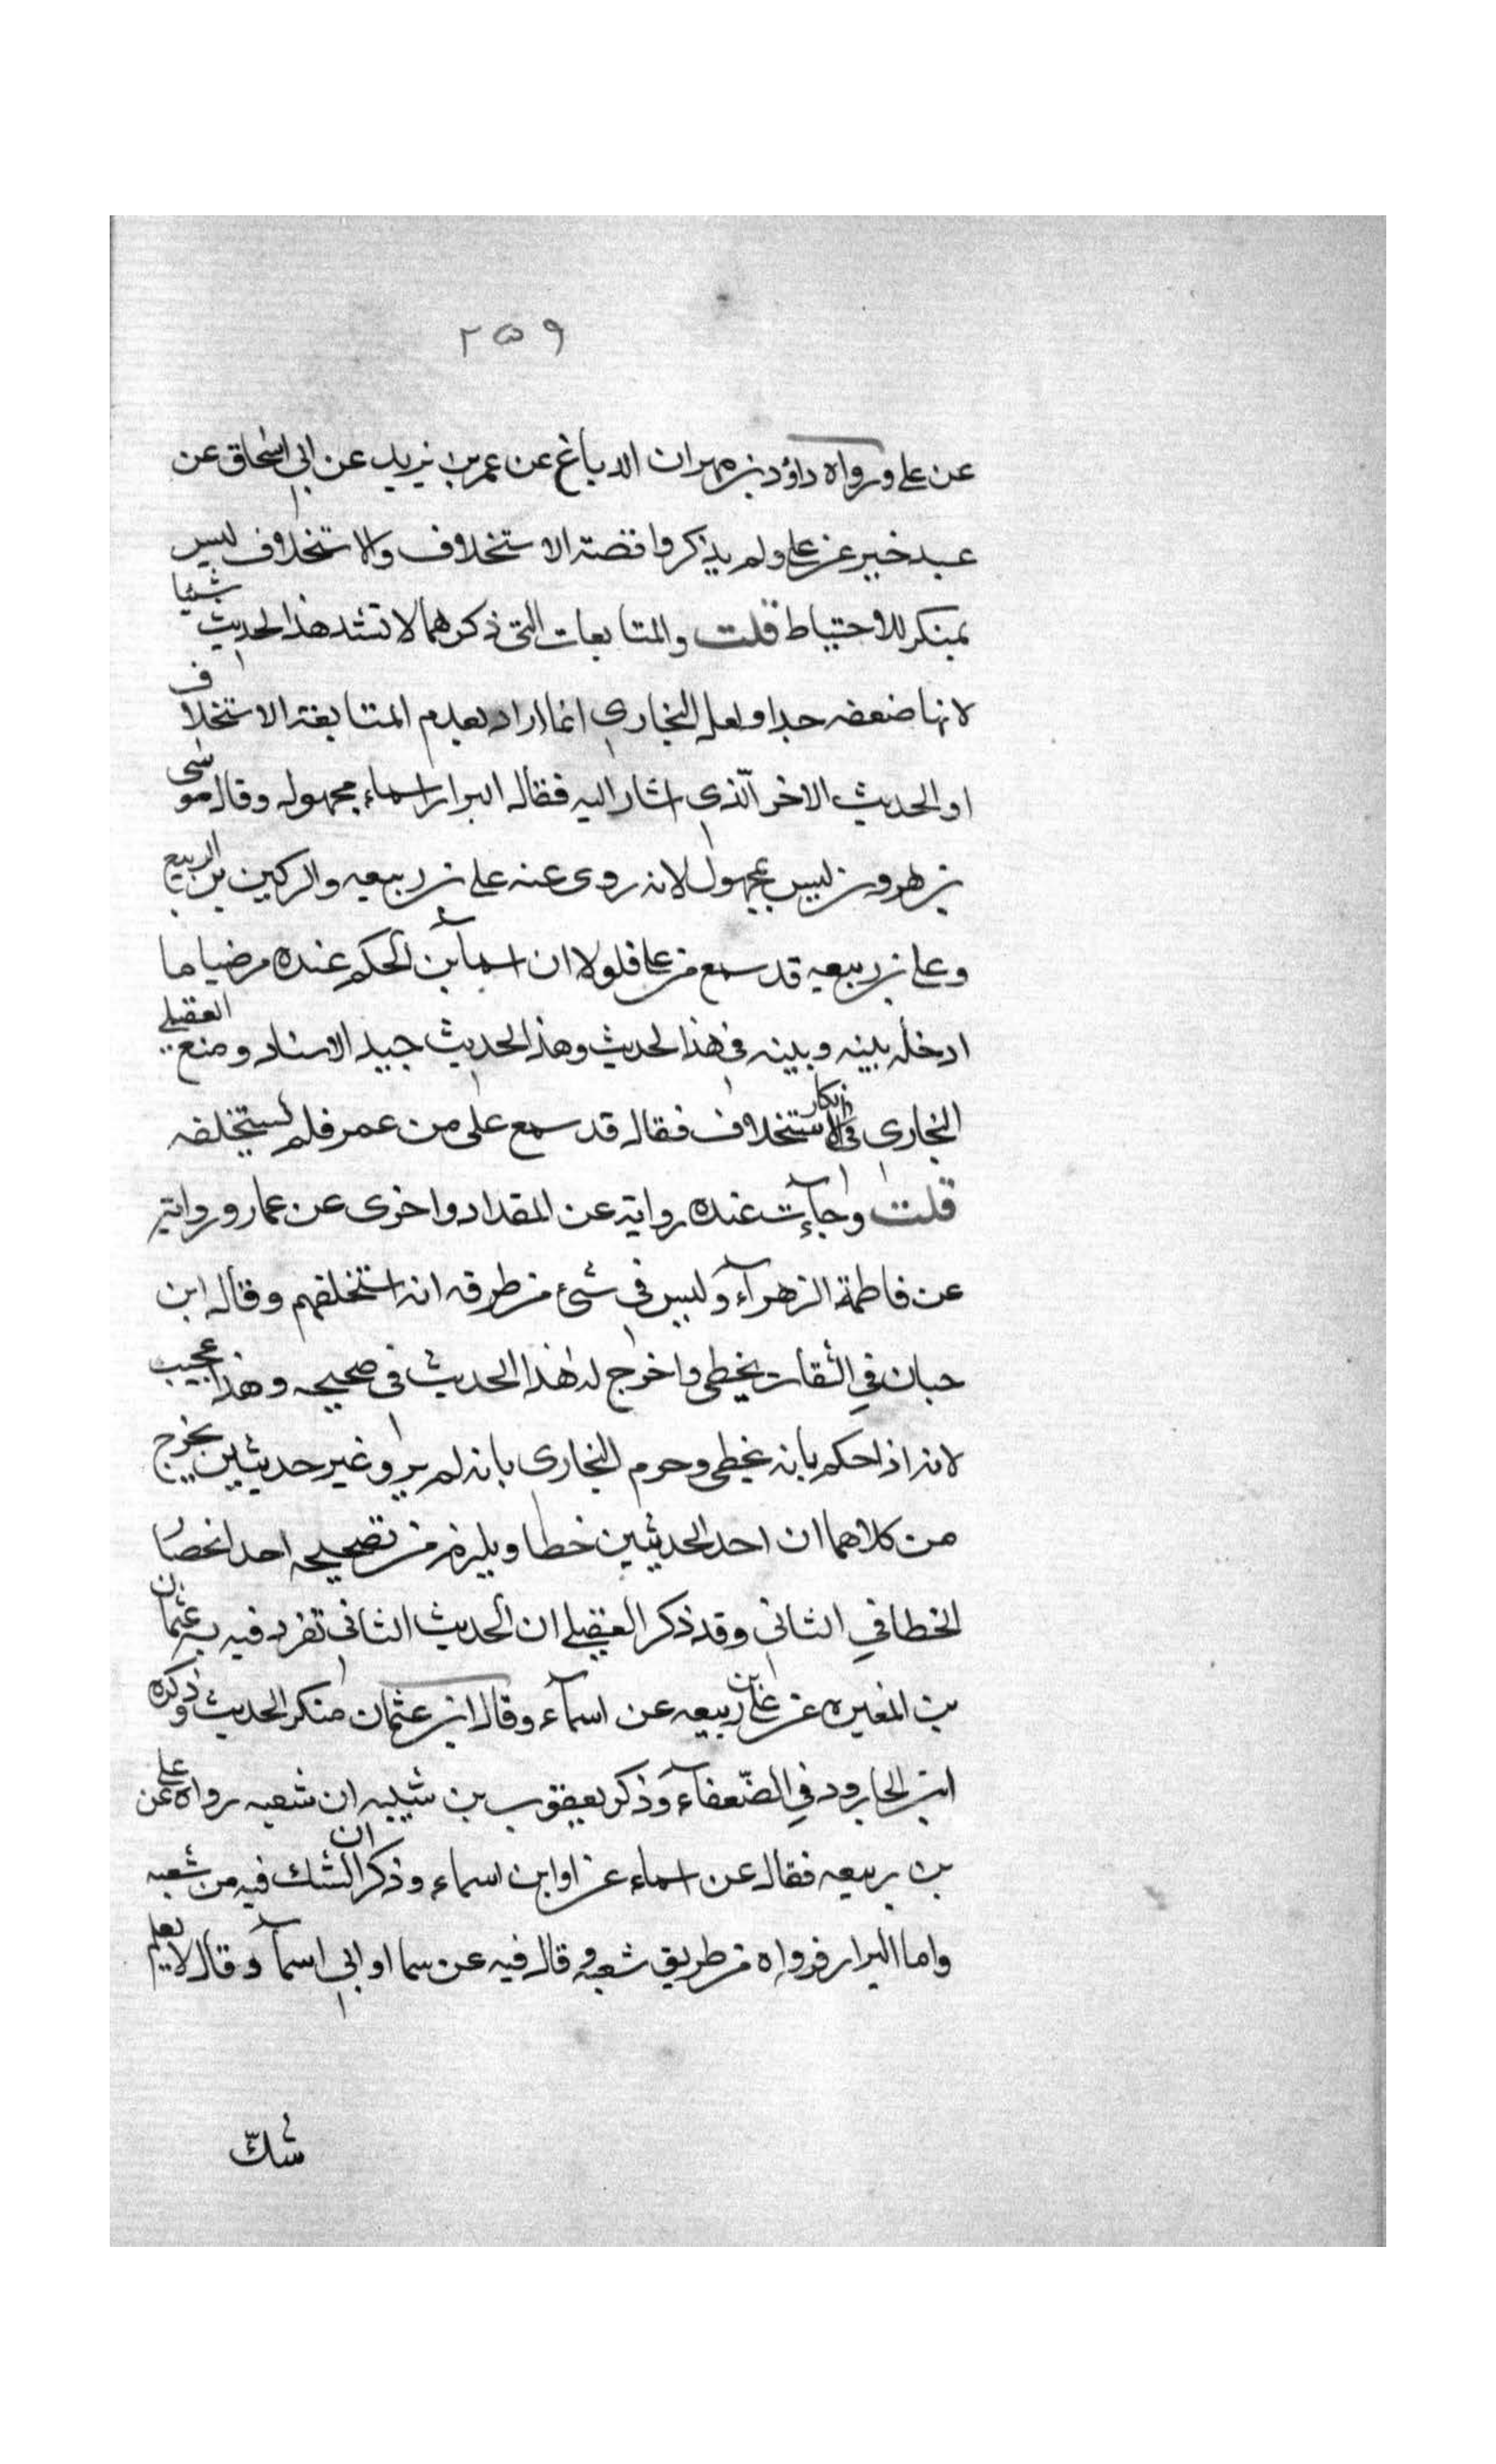 ٢٥٩
عن على ورواه داؤد بن مهران الدباغ عن عمر بن يزيد عن ابى اسحاق عن
عبد خير عن على ولم يذكروا قصة الاستخلاف والاستخلاف ليس
بمنكر للاحتياط قلت والمتابعات التى ذكرهما لا تشد هذا الحديث شيئا
لانها ضعفه جدا ولعل البخارى انما اراد بعدم المتابعة الاستخلاف
او الحديث الاخر الّذى اشار اليه فقال البزار اسماء مجهول وقال موسى
بن هرون ليس بمجهول لانه روى عنه على بن ربيعه والركين بن الربيع
وعلى بن ربيعه قد سمع من على فلولا ان اسمآ بن الحكم عنده مرضيا ما
ادخله بينه وبينه فى هذا الحديث وهذا الحديث جيد الاسناد ومنع العقيلى
البخارى فى انكار الاستخلاف فقال قد سمع على من عمر فلم يستخلفه
قلت وجآءت عنده رواية عن المقداد واخرى عن عمار ورواية
عن فاطمة الزهرآء وليس فى شئ من طرقه انه استخلفهم وقال ابن
حبان في الثقات يخطى واخرج له هذا الحديث فى صحيحه وهذا عجيب
لانه اذا حكم بانه يخطى وحرم البخارى بانه لم يرو غير حديثين يخرج
من كلاهما ان احد الحديثين خطا ويلزم من تصحيحه احد انحصار
الخطا في الثانى وقد ذكر العقيلى ان الحديث الثانى تفرد فيه به عثمان
بن المغيره عن على بن ربيعه عن اسمآء وقال ابن عثمان منكر الحديث وذكره
ابن الجارود في الضّعفآء وذكر يعقوب بن شيبه ان شعبه رواه عن على
بن ربيعه فقال عن اسماء عن او ابن اسماء وذكر ان الشك فيه من شعبه
واما البزار فرواه من طريق شعبه وقال فيه عن سما او ابى اسمآ وقال لا يعلم
شكّ